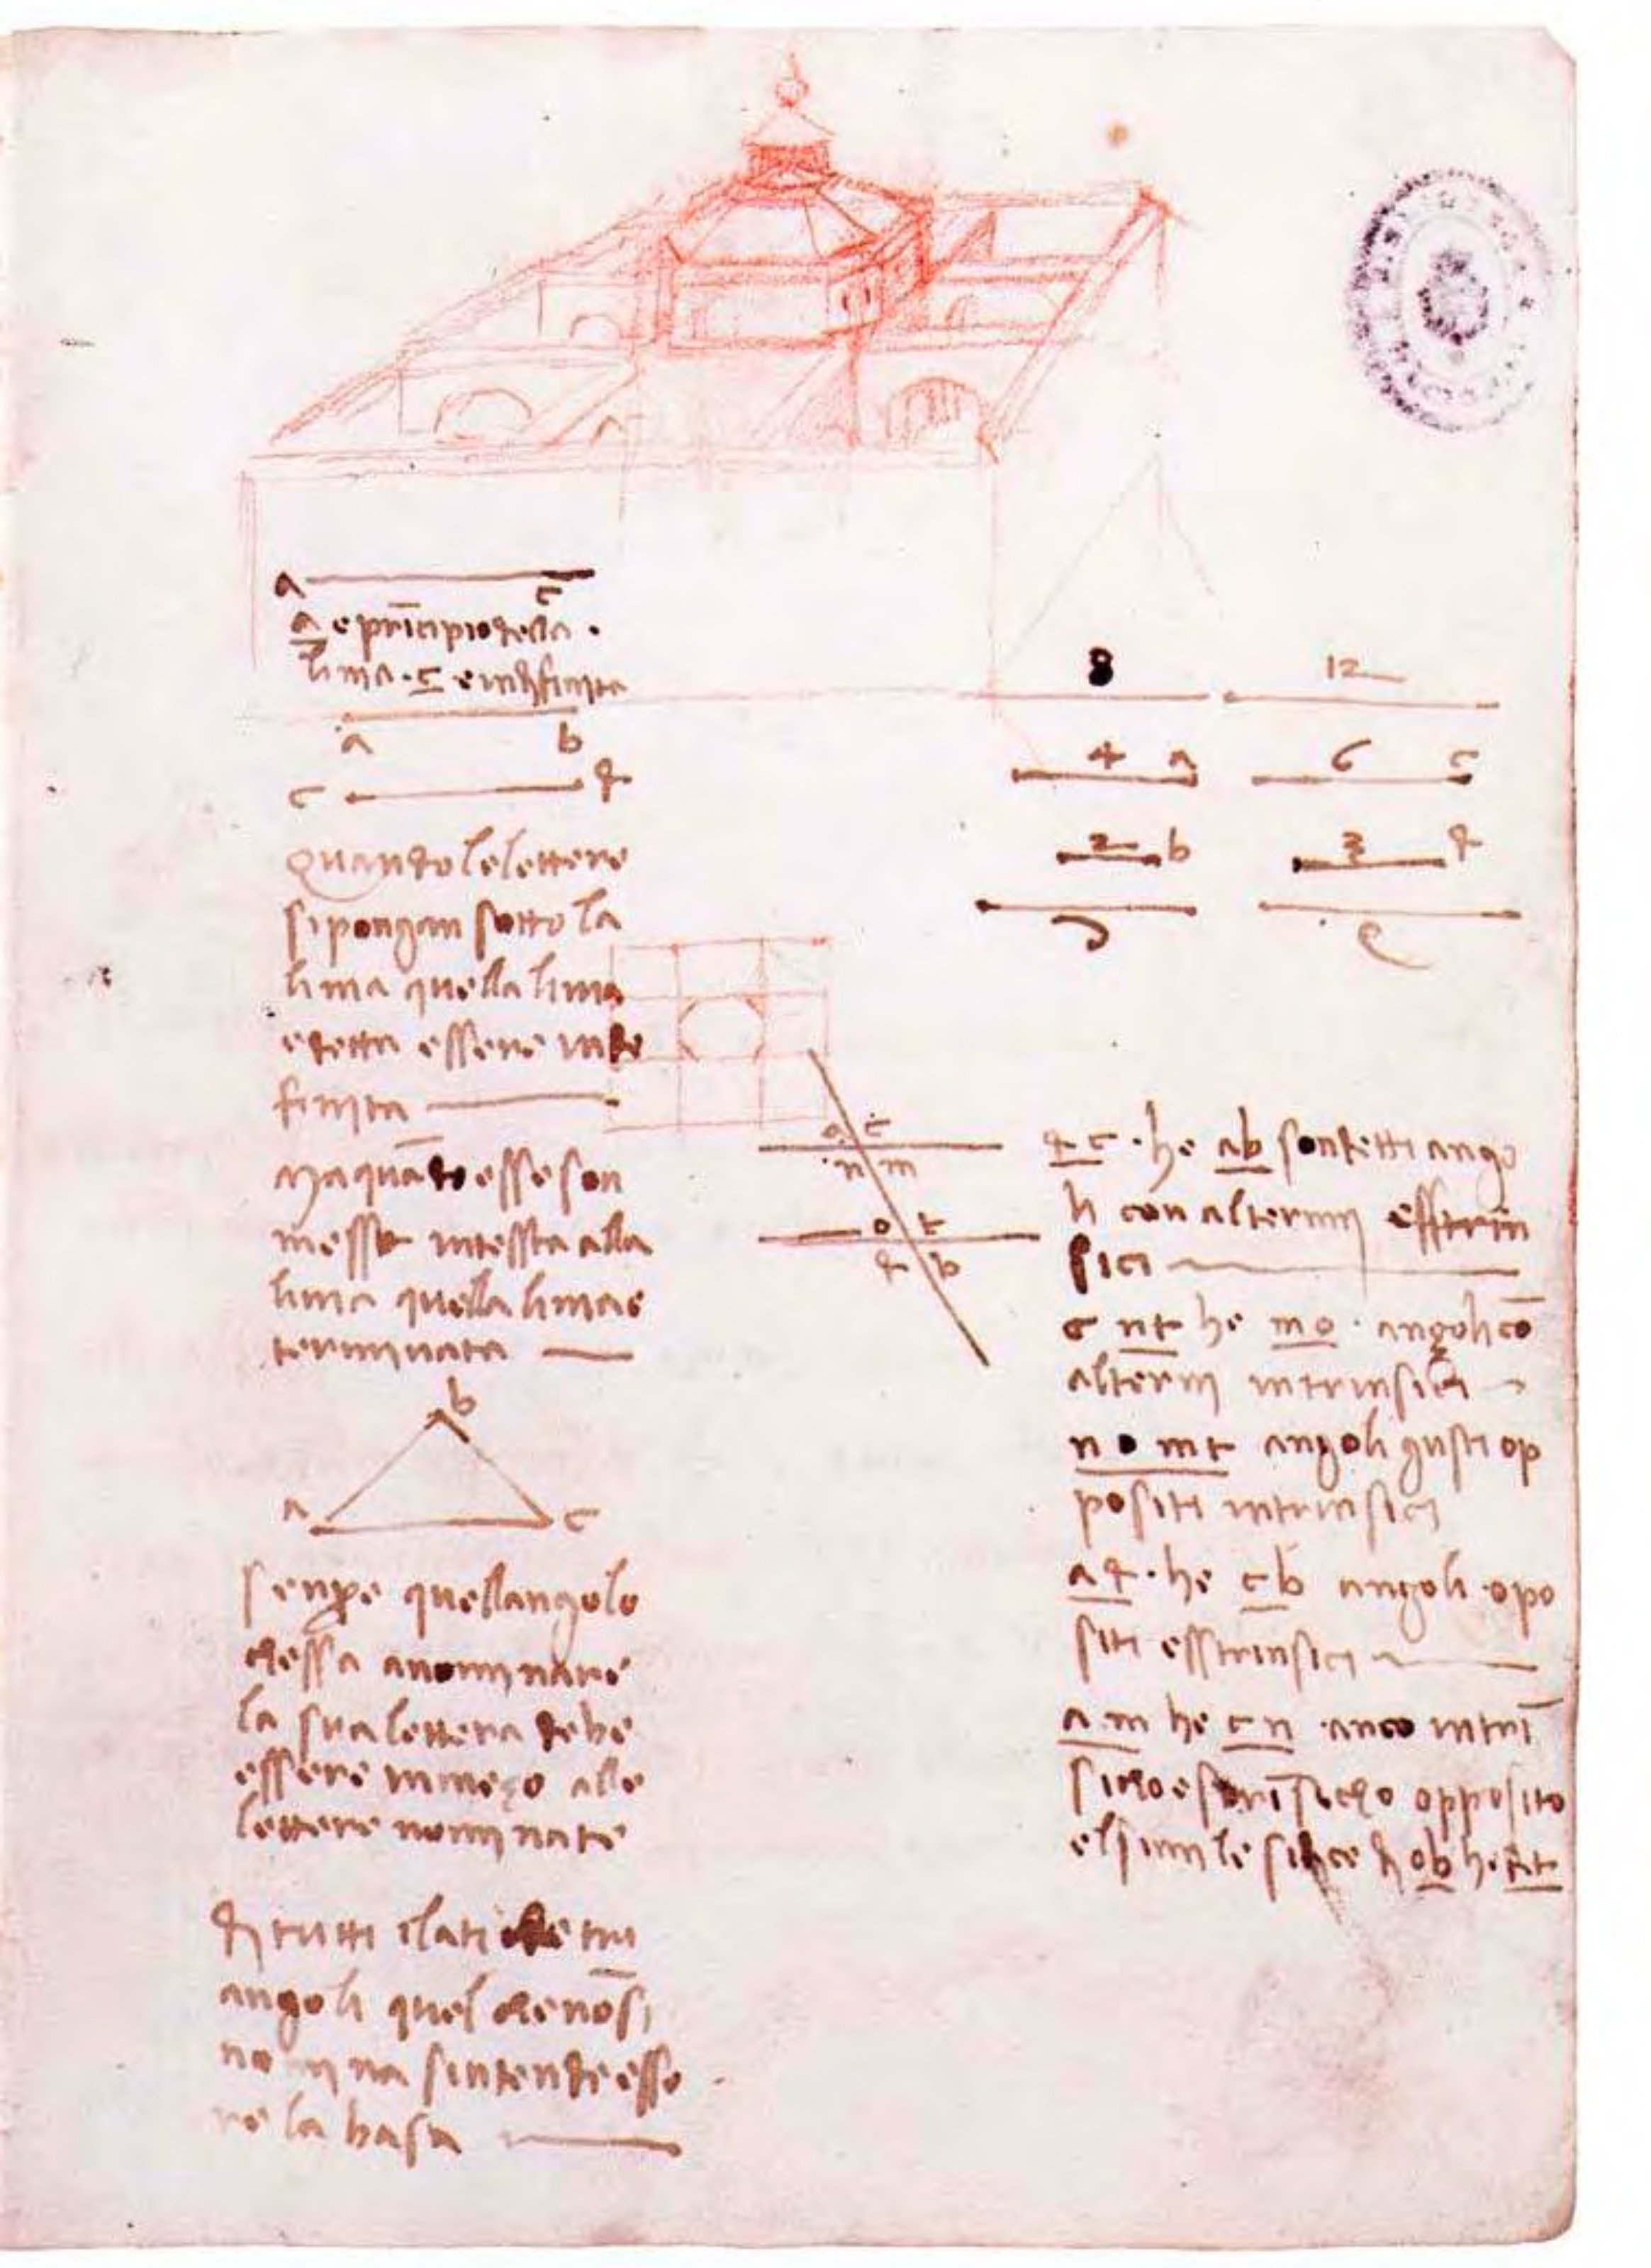 a
c
a e prīcipio della
linia · c e indifinita
a b
c d
quando le lettere
si pongan sotto la
linia quella linia
e detta essere inde
finita
Ma quādo esse son
messe intessta alla
linia quella linia e
terminata
b
a c
senpre quellangolo
chessa anominare
la sua lettera debe
essere inmezo alle
lettere nominate
di tutti i lati de tri
angoli quel che nō si
nomina sintende esse
re la basa
8 12
4 a 6 c
2 b 3 d
a c
n m
o t
d b
d c · he a b son detti ango
li conalternj esstrin
sici
c n t he m o · angoli cō
alternj intrinsici
n o m t angoli gusti op
positi intrinsici
a d · he c b angoli opo
siti esstrinsici
a m he c n · anco intrī
sicho opposito
el simile si dice di o b he d t